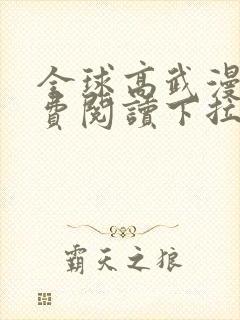 全球高武漫
費閱讀下拉
霸天之狼